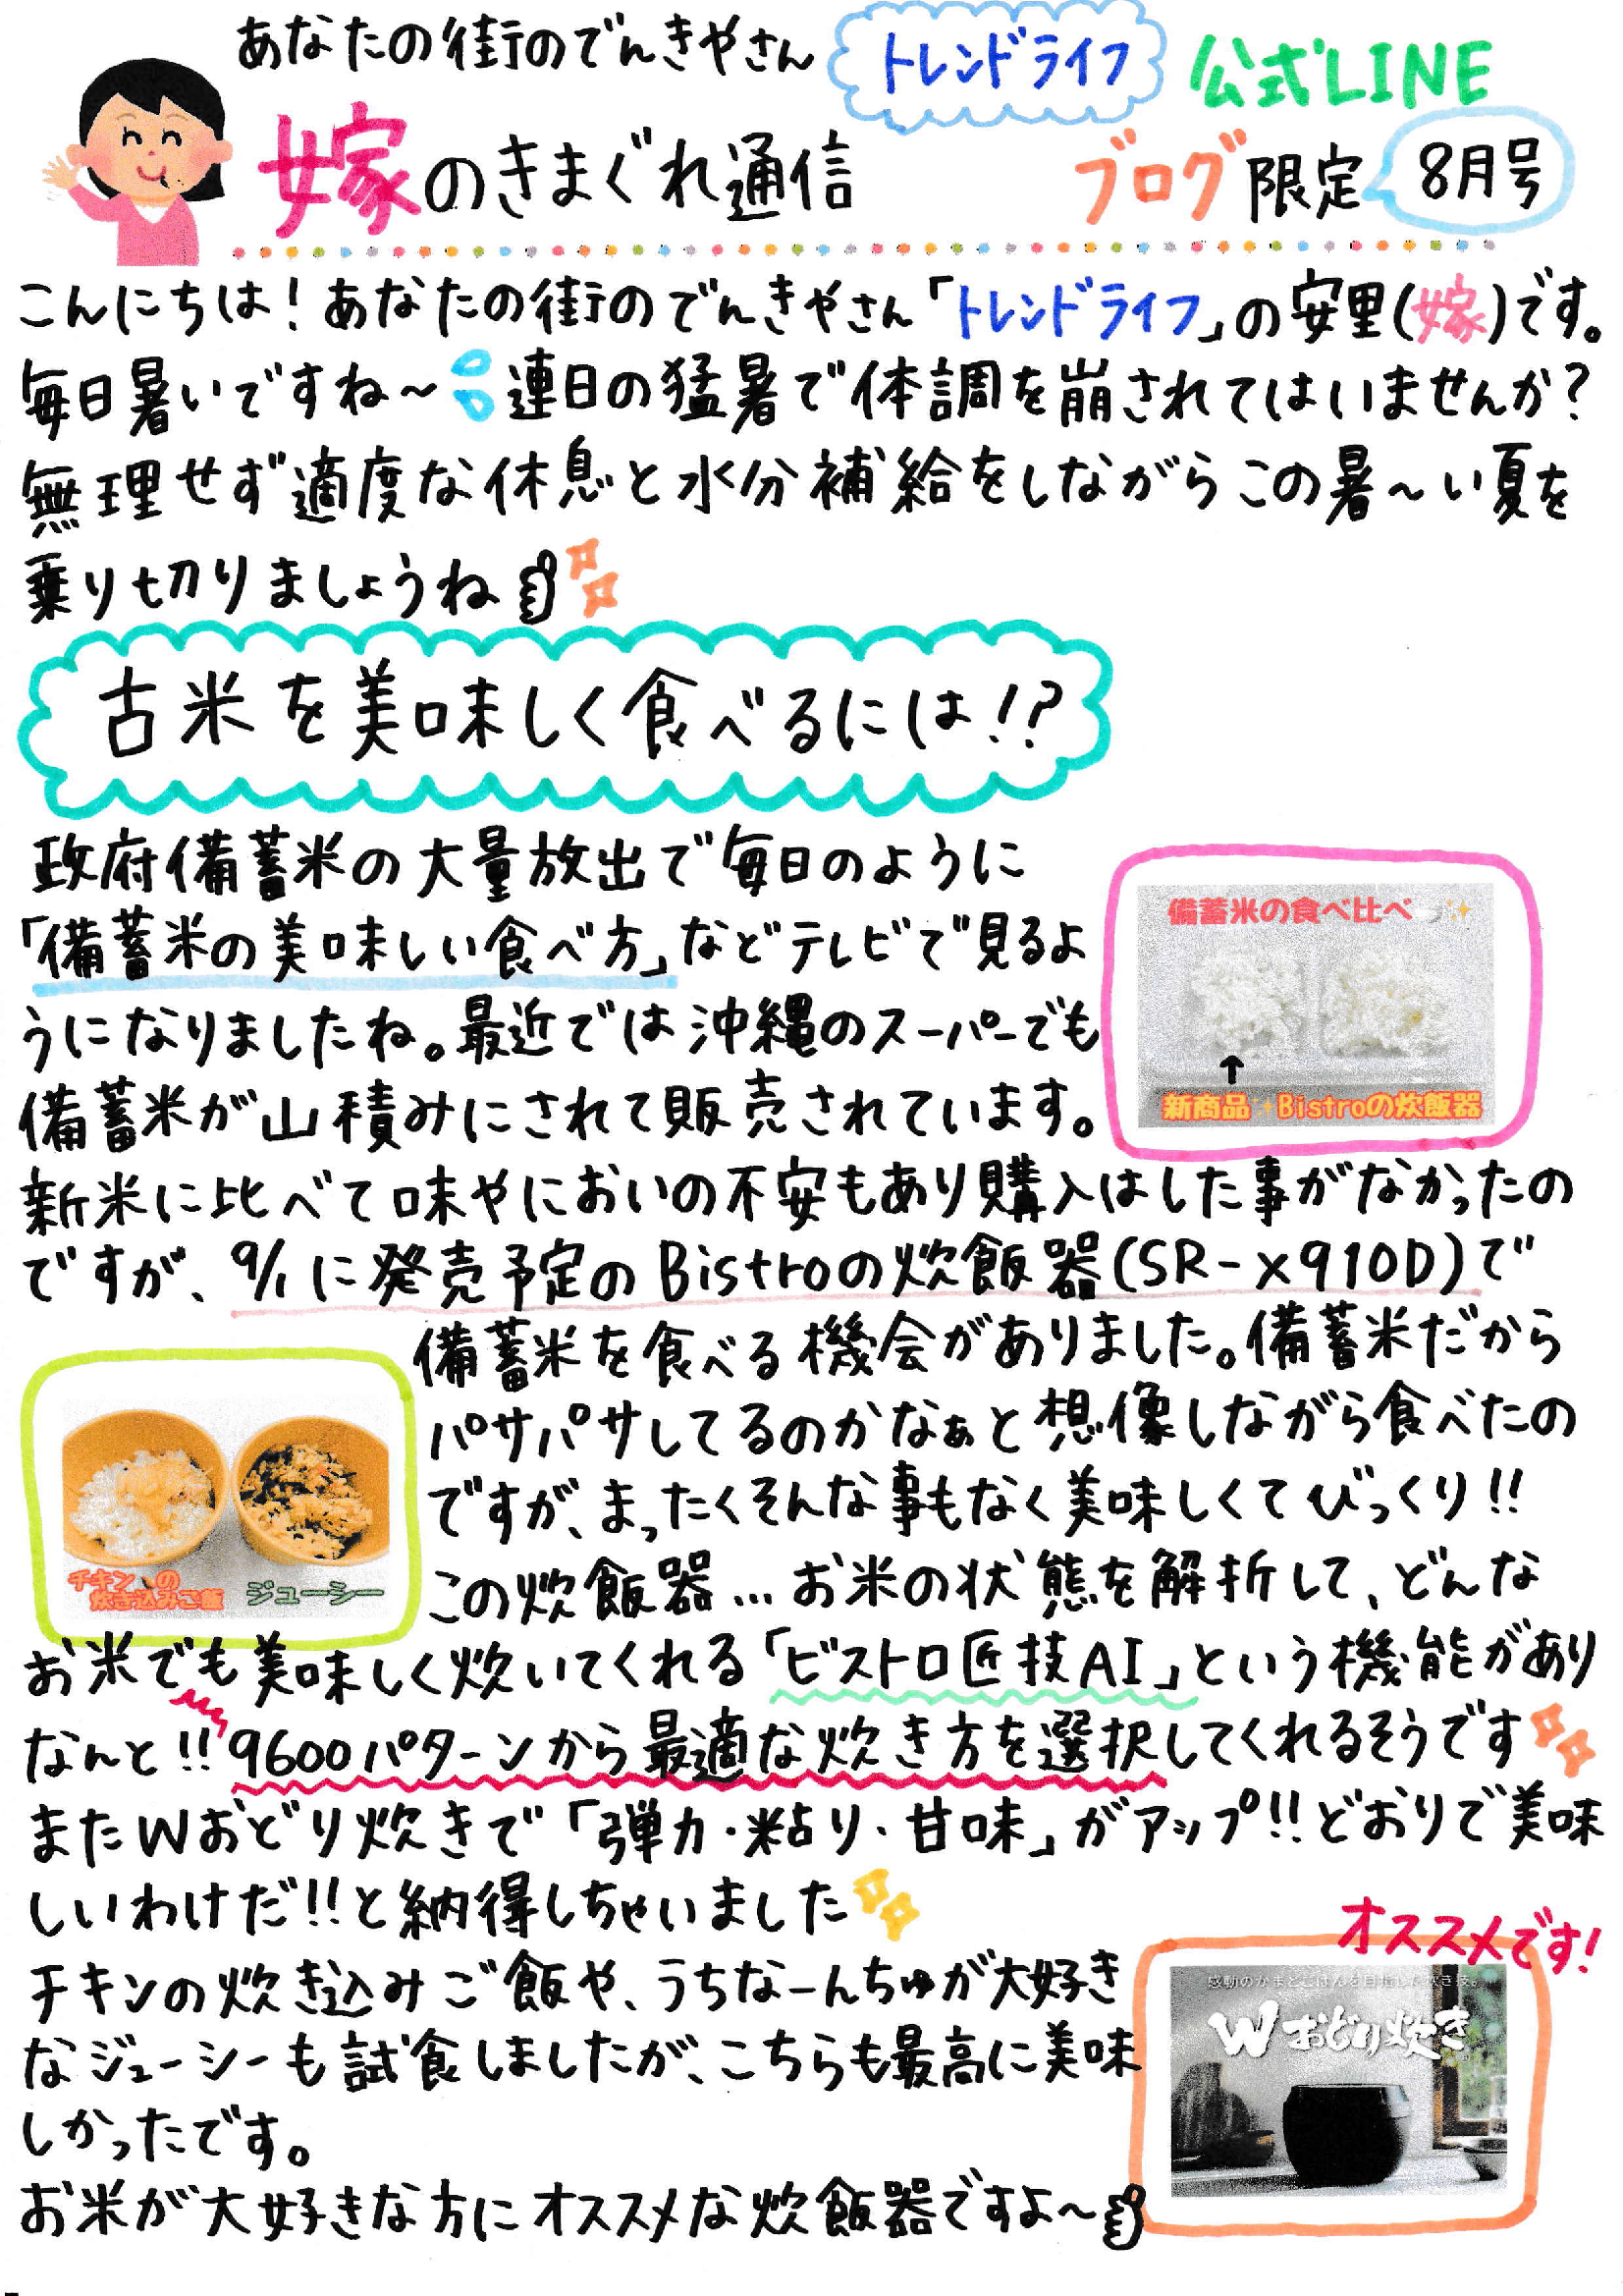 あなたの街のでんきやさん トレンドライフ 公式LINE
嫁のきまぐれ通信 ブログ限定 8月号
こんにちは!あなたの街のでんきやさん「トレンドライフ」の安里(嫁)です。
毎日暑いですね~連日の猛暑で体調を崩されてはいませんか?
無理せず適度な休息と水分補給をしながらこの暑~い夏を
乗り切りましょうね
古米を美味しく食べるには!?
政府備蓄米の大量放出で毎日のように
「備蓄米の美味しい食べ方」などテレビで見るよ
うになりましたね。最近では沖縄のスーパーでも
備蓄米が山積みにされて販売されています。
備蓄米の食べ比べ
新商品 Bistroの炊飯器
新米に比べて味やにおいの不安もあり購入はした事がなかったの
ですが、9/1に発売予定のBistroの炊飯器(SR-X910D)で
備蓄米を食べる機会がありました。備蓄米だから
パサパサしてるのかなぁと想像しながら食べたの
ですが、まったくそんな事もなく美味しくてびっくり!!
この炊飯器...お米の状態を解折して、どんな
チキンの
炊き込みご飯
ジューシー
お米でも美味しく炊いてくれる「ビストロ匠技AI」という機能があり
なんと!!9600パターンから最適な炊き方を選択してくれるそうです
またWおどり炊きで「弾力・粘り・甘味」がアップ!!どおりで美味
しいわけだ!!と納得しちゃいました
チキンの炊き込みご飯や、うちなーんちゅが大好き
なジューシーも試食しましたが、こちらも最高に美味
しかったです。
お米が大好きな方にオススメな炊飯器ですよ~
オススメです!
感動のかまどごはんを目指した炊き技。
Wおどり炊き